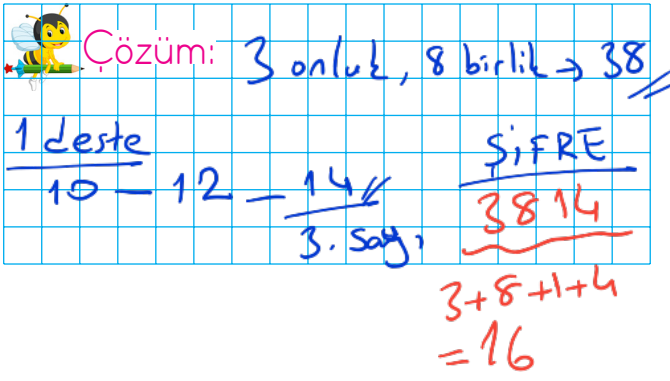 Çözüm: 3 onluk, 8 birlik → 38
1 deste
10 — 12 — 14
3. sayı
ŞİFRE
3814
3+8+1+4
=16